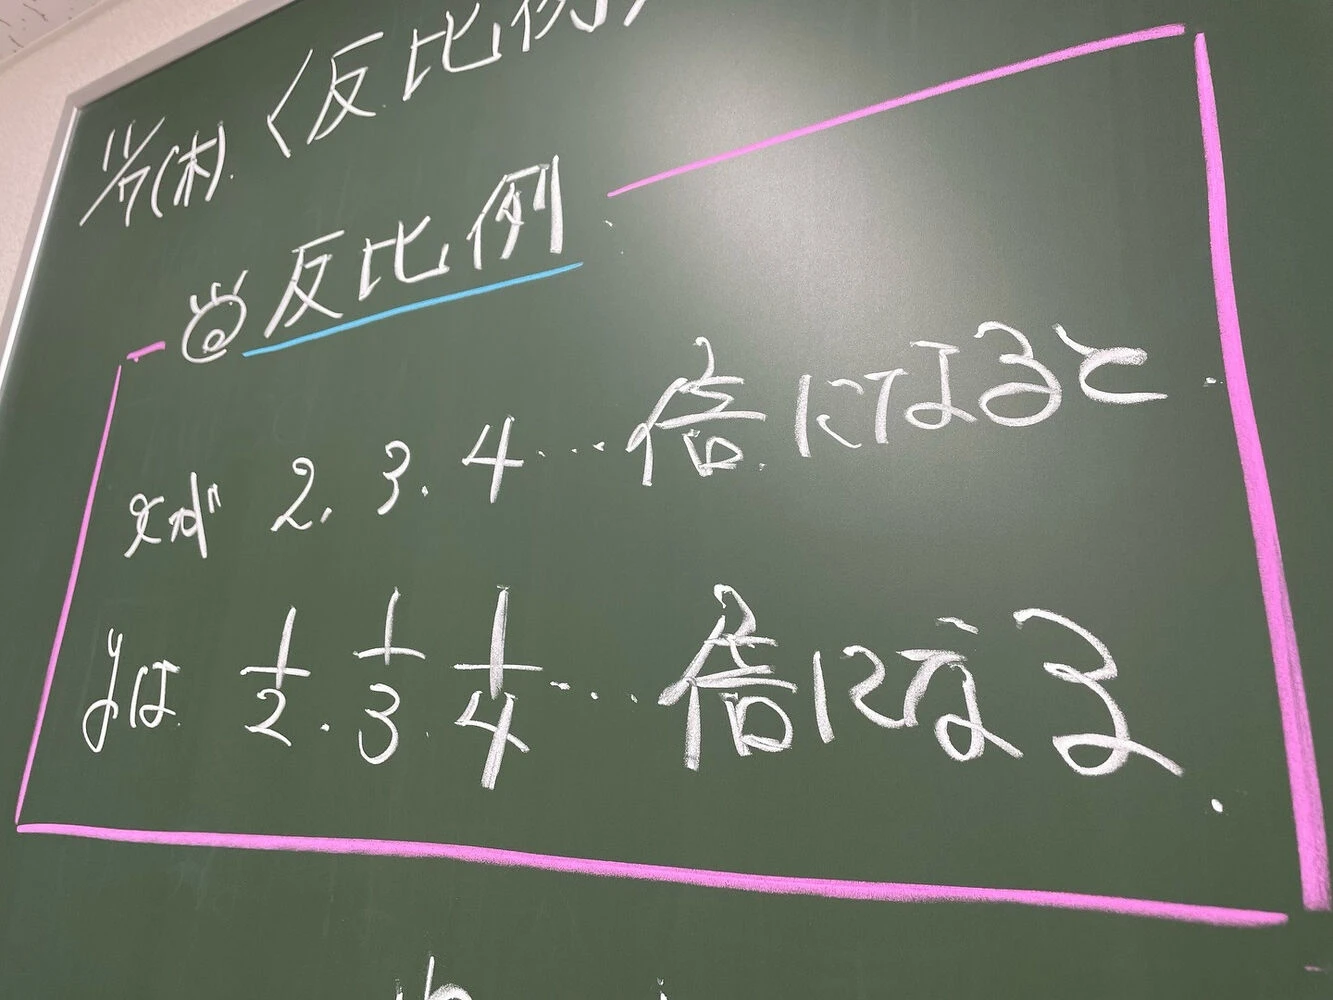 (木)〈反比例〉
反比例
xが 2. 3. 4…倍になると
yは 1/2. 1/3. 1/4…倍になる.